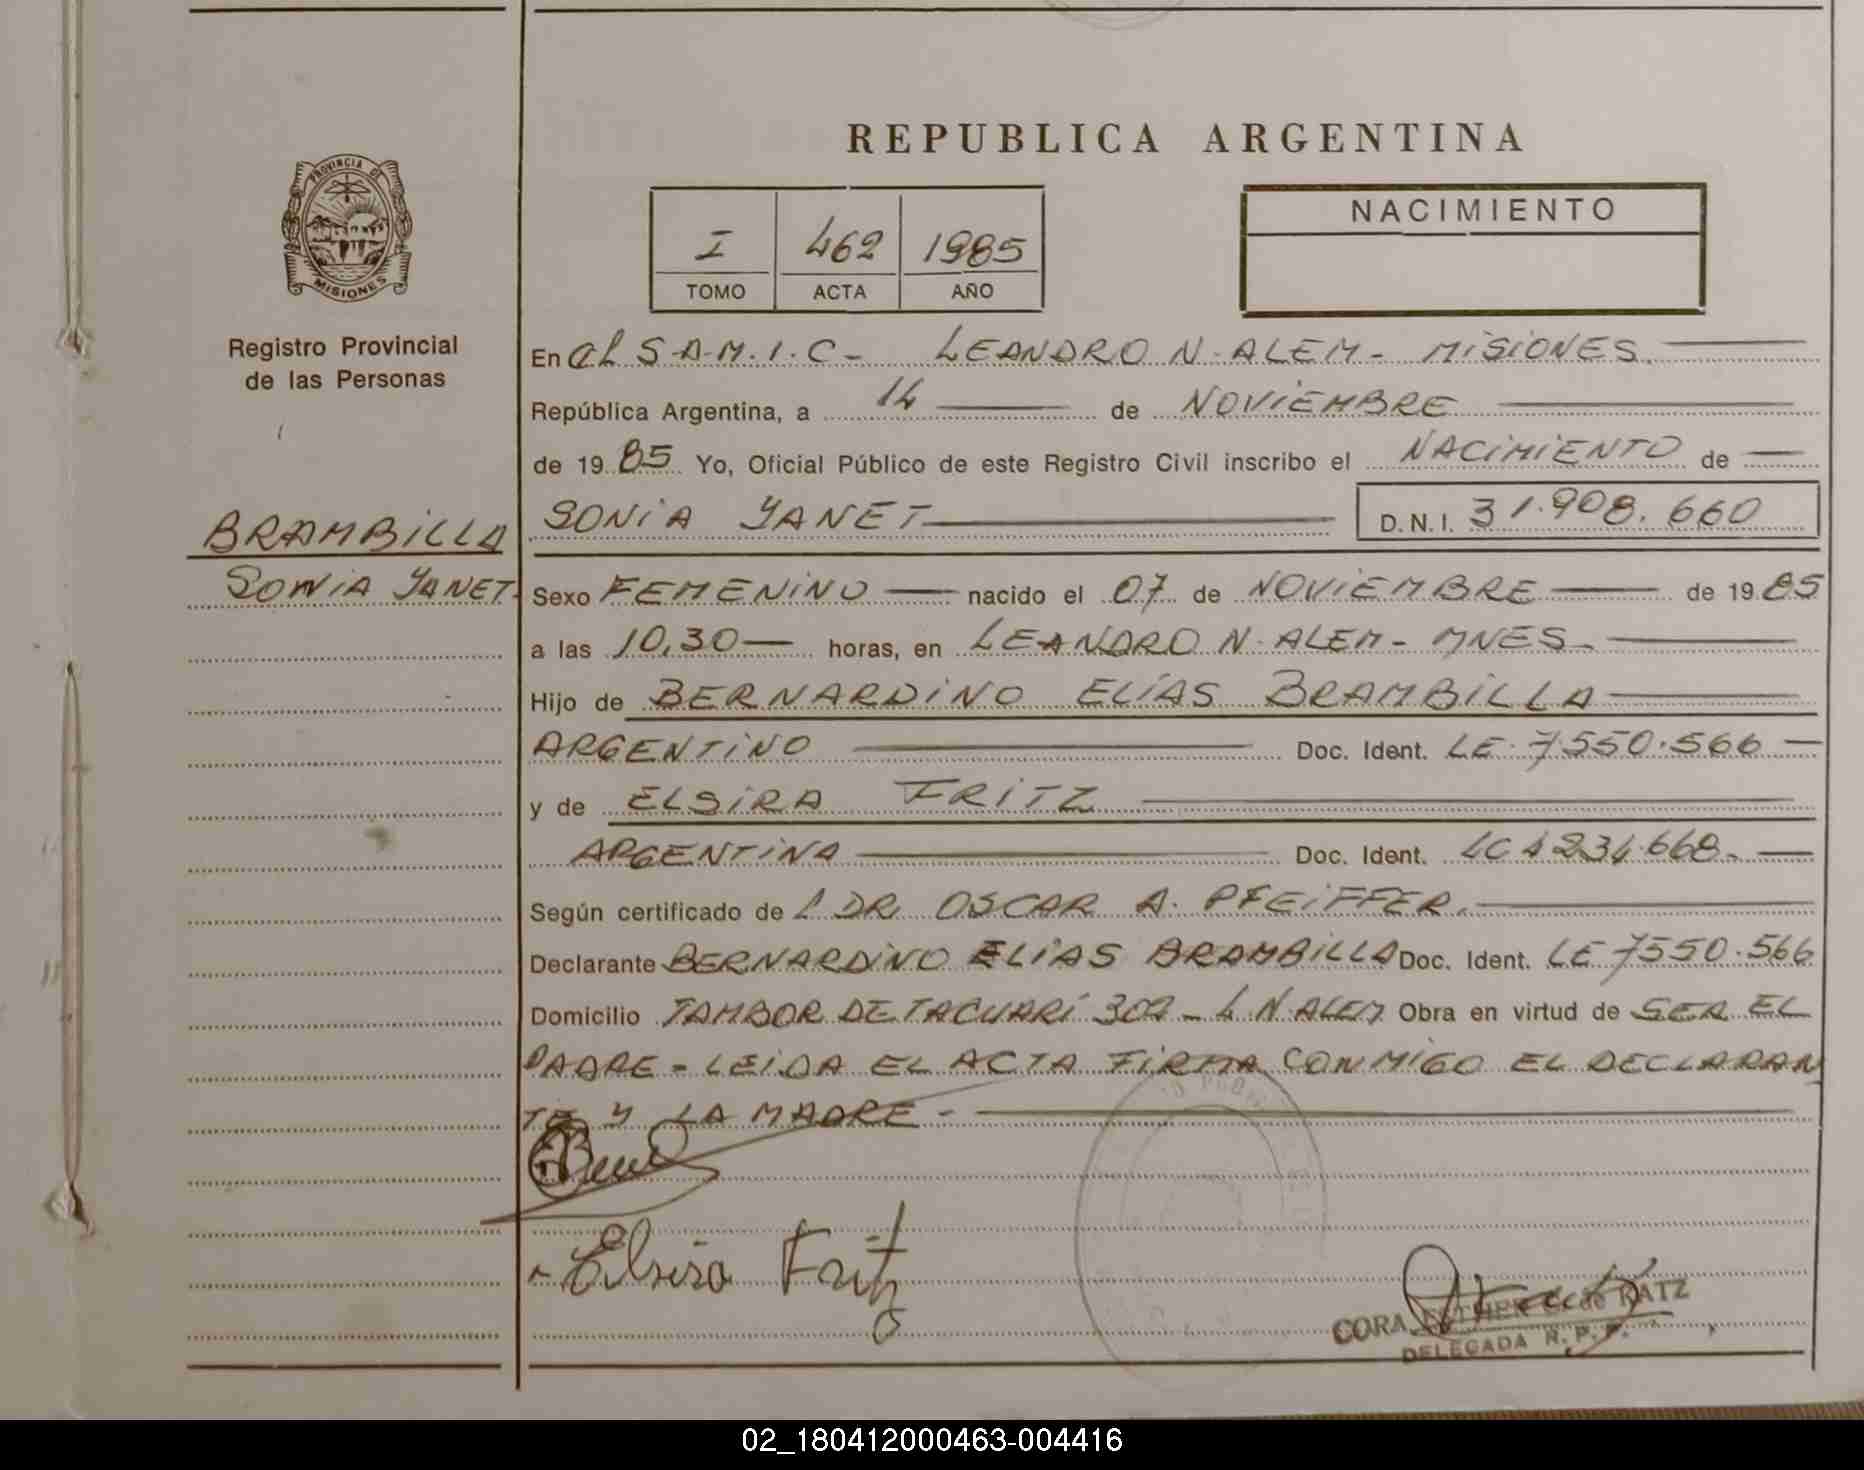 REPUBLICA ARGENTINA
PROVINCIA DE
MISIONES
Registro Provincial
de las Personas
I 462 1985
TOMO ACTA AÑO
NACIMIENTO
En el S.A.M.I.C- LEANDRO N. ALEM- MISIONES.
República Argentina, a 14 de NOVIEMBRE
de 1985 Yo, Oficial Público de este Registro Civil inscribo el NACIMIENTO de
SONIA YANET D.N.I. 31.908.660
BRAMBILLA
SONIA YANET
Sexo FEMENINO nacido el 07 de NOVIEMBRE de 1985
a las 10,30 horas, en LEANDRO N. ALEM- MNES.
Hijo de BERNARDINO ELÍAS BRAMBILLA
ARGENTINO Doc. Ident. LE. 7550.566
y de ELSIRA FRITZ
ARGENTINA Doc. Ident. LC 4234.668.
Según certificado de l DR. OSCAR A. PFEIFFER.
Declarante BERNARDINO ELIAS BRAMBILLA Doc. Ident. LE 7550.566
Domicilio TAMBOR DE TACUARÍ 302 - L. N. ALEM Obra en virtud de SER EL
PADRE - LEIDA EL ACTA FIRMA CONMIGO EL DECLARAN
TE Y LA MADRE -
Elsira Fritz
CORA ESTHER de KATZ
DELEGADA R. P. P.
02_180412000463-004416